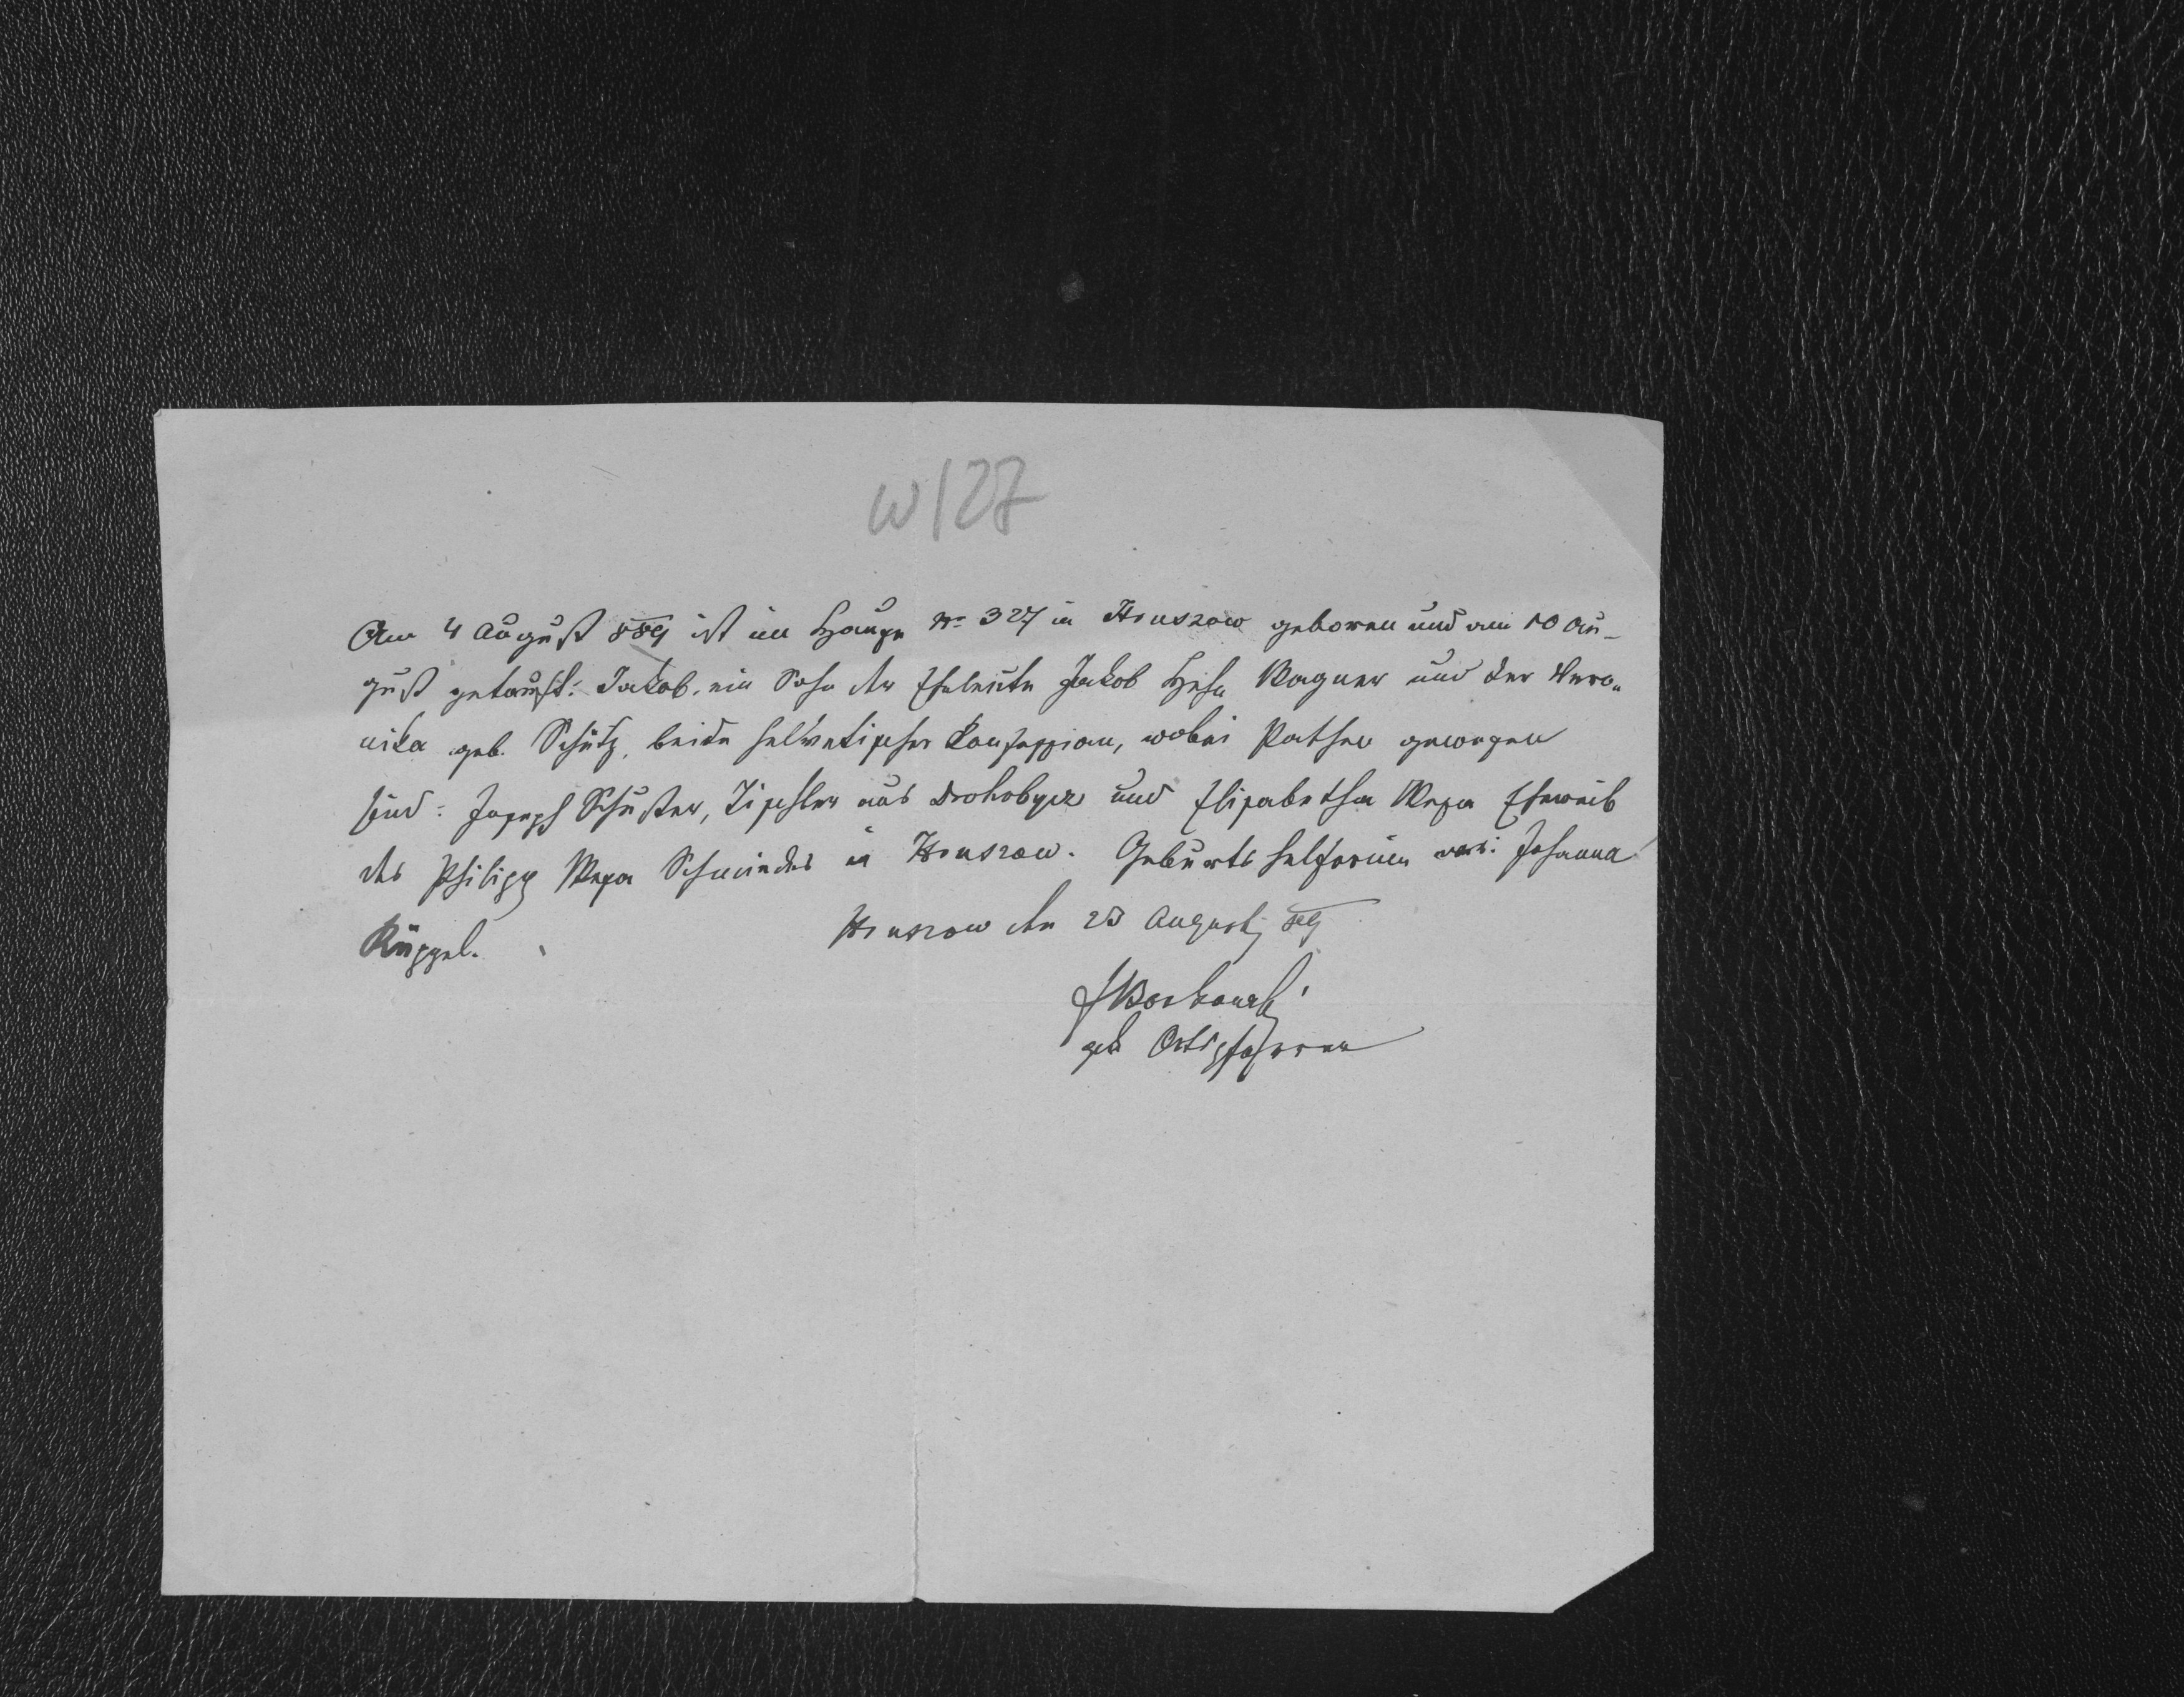 W/27
Am 4 August 889 ist im Hause Nr 327 in Hruszow geboren und am 10 Au-
gust getauft: Jakob, ein Sohn der Eheleute Jakob Hein Wagner und der Vero-
nika geb. Schütz, beide helvetischer Konfession, wobei Pathen gewesen
sind: Joseph Schuster, Tischler aus Drohobycz und Elisabetha Weja Eheweib
des Philipp Weja Schmiedes in Hruszow. Geburtshelferin war: Johanna
Rüppel.
Hruszow den 23 August 889
gk Ortspfarrer